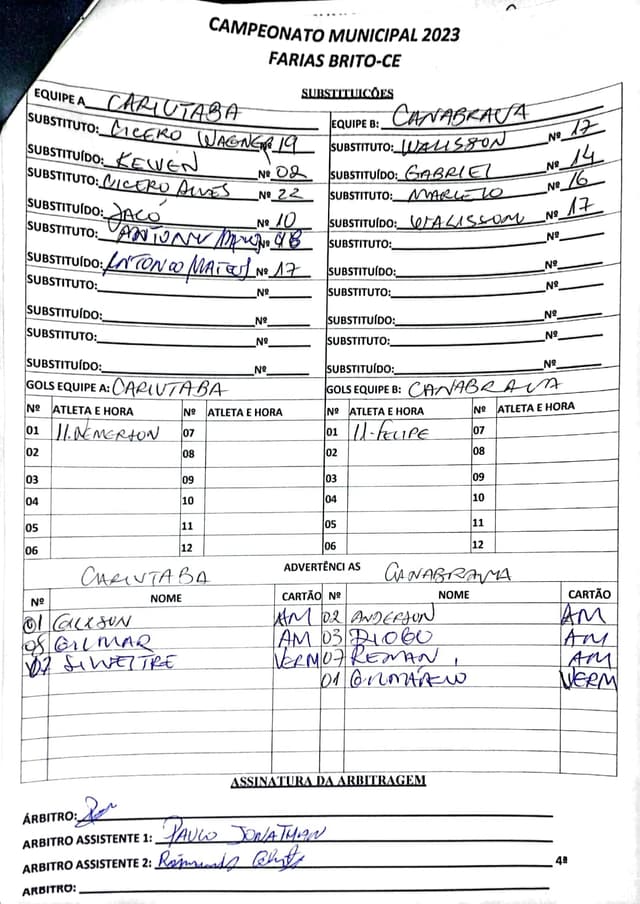 CAMPEONATO MUNICIPAL 2023
FARIAS BRITO-CE
SUBSTITUIÇÕES
EQUIPE A CARIUTABA
SUBSTITUTO: CICERO WAGNER 19
SUBSTITUÍDO: KEWEN Nº 02
SUBSTITUTO: CICERO ALVES Nº 22
SUBSTITUÍDO: JACÓ Nº 10
SUBSTITUTO: ANTONY Nº 18
SUBSTITUÍDO: ANTONIO MATEUS Nº 17
SUBSTITUTO: Nº
SUBSTITUÍDO: Nº
SUBSTITUTO: Nº
SUBSTITUÍDO: Nº
EQUIPE B: CANABRAVA
SUBSTITUTO: WALISSON Nº 17
SUBSTITUÍDO: GABRIEL Nº 14
SUBSTITUTO: MARCELO Nº 16
SUBSTITUÍDO: WALISSOM Nº 17
SUBSTITUTO: Nº
SUBSTITUÍDO: Nº
SUBSTITUTO: Nº
SUBSTITUÍDO: Nº
SUBSTITUTO: Nº
SUBSTITUÍDO: Nº
GOLS EQUIPE A: CARIUTABA
Nº ATLETA E HORA Nº ATLETA E HORA
01 11. DEMERSON 07
02 08
03 09
04 10
05 11
06 12
GOLS EQUIPE B: CANABRAVA
Nº ATLETA E HORA Nº ATLETA E HORA
01 11-FELIPE 07
02 08
03 09
04 10
05 11
06 12
ADVERTÊNCIAS
CARIUTABA
Nº NOME CARTÃO
01 AM
05 GILMAR AM
07 SILVESTRE VERM
CANABRAVA
Nº NOME CARTÃO
02 ANDERSON AM
03 DIOGO AM
07 RENAN AM
01 GILMÁRIO VERM
ASSINATURA DA ARBITRAGEM
ÁRBITRO:
ARBITRO ASSISTENTE 1: PAULO JONATHAN
ARBITRO ASSISTENTE 2: Raimundo
4ª
ARBITRO: